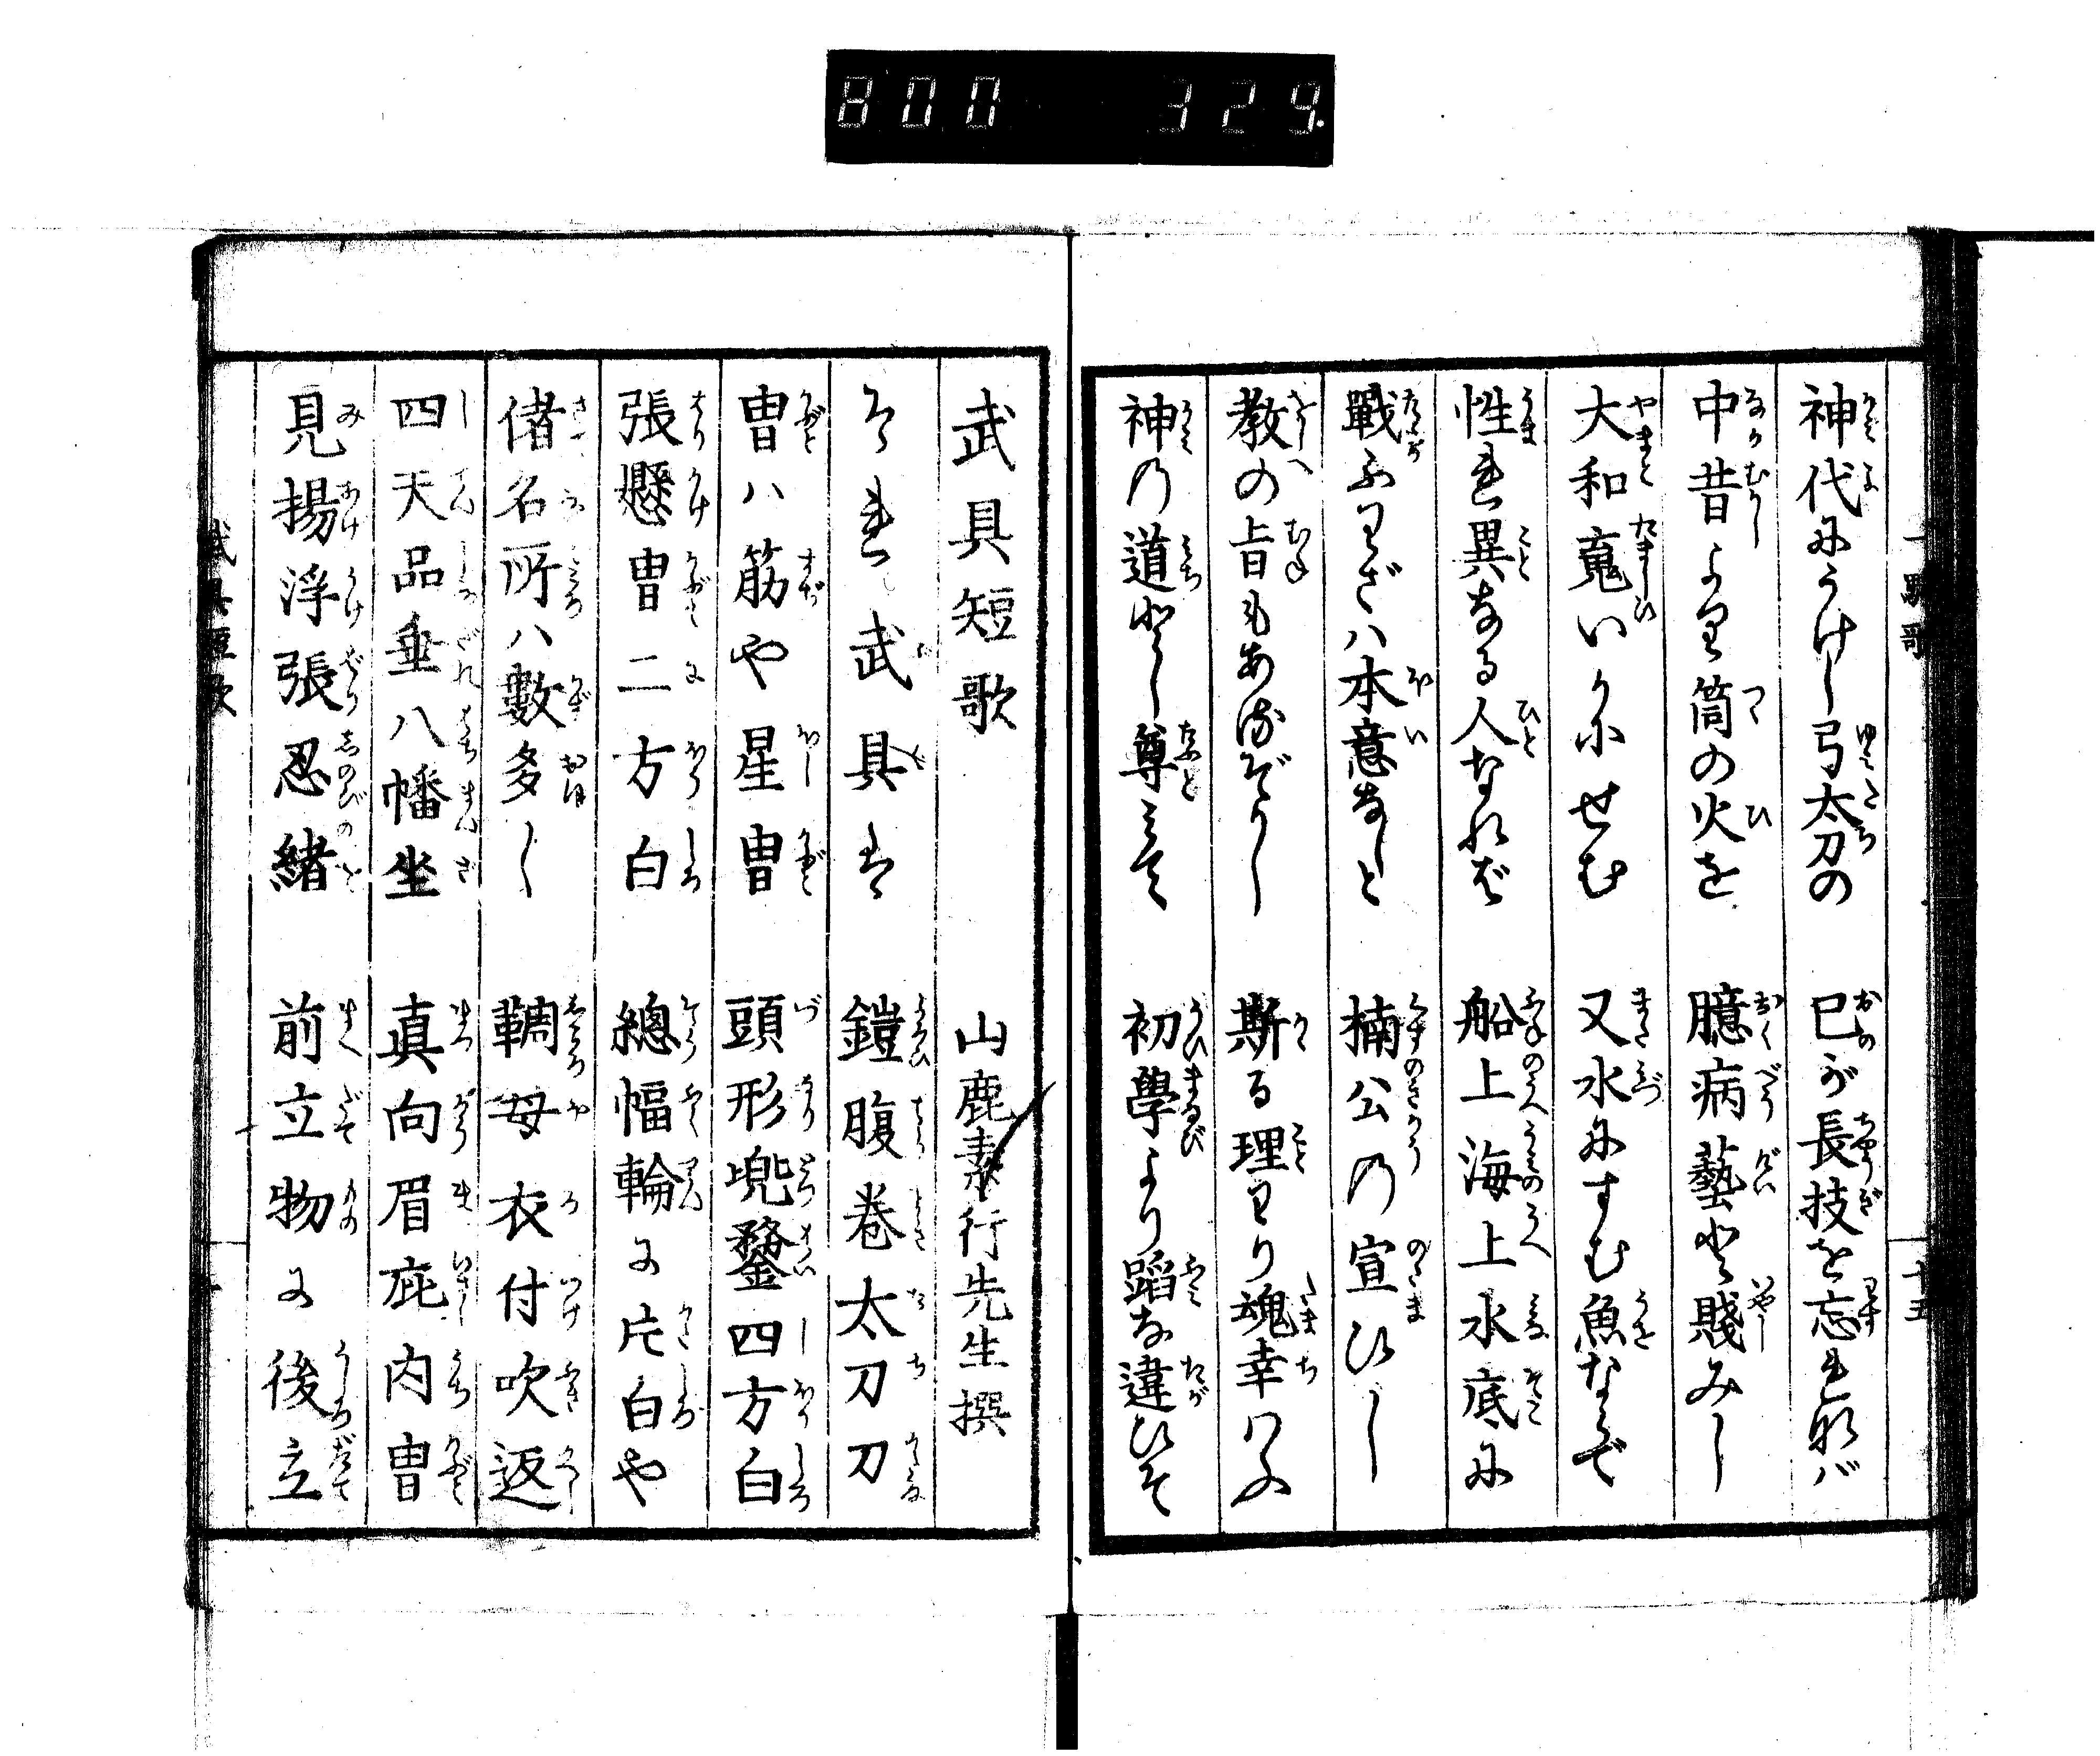 800 329
神代にうけし弓太刀の 己が長技を忘れなバ
中昔より筒の火を 臆病藝と賤みし
大和魂いかにせむ 又水にすむ魚ならで
性れ異なる人なれば 船上海上水底に
戰ふわざハ本意なしと 楠公の宣ひし
教の旨もあるぞかし 斯る理わり魂幸はふ
神の道とし尊みて 初學より蹈な違ひそ
十五
武具短歌 山鹿素行先生撰
それ武具は 鎧腹巻太刀刀
冑ハ筋や星冑 頭形兜鍪四方白
張懸冑二方白 總幅輪に片白や
偖名所ハ數多し 鞠母衣付吹返
四天品垂八幡坐 真向眉庇内冑
見揚浮張忍緒 前立物に後立
武具短歌